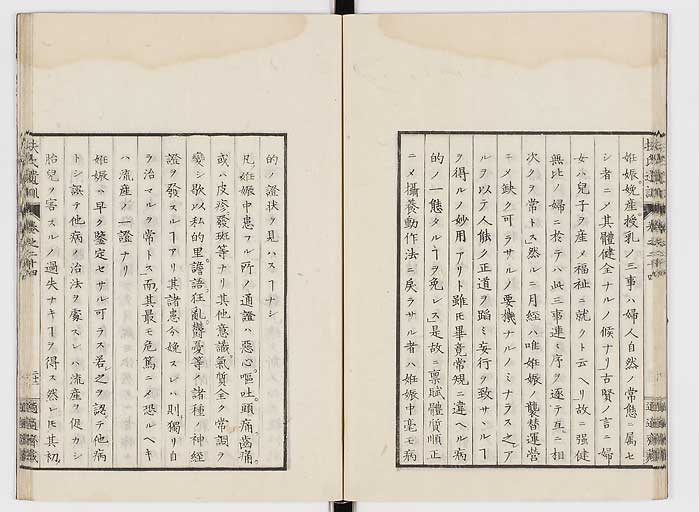 妊娠娩産授乳ノ三事ハ婦人自然ノ常態ニ属セ
シ者ニ〆其體健全ナルノ候ナリ古賢ノ言ニ婦
女ハ兒子ヲ産メ福祉ニ就クト云ヘリ故ニ强健
無比ノ婦ニ於テハ此三事連ニ序ヲ逐テ互ニ相
次クヲ常トス然ルニ月經ハ唯妊娠ノ襲替運營
ニ〆缺ク可ラサルノ要機ナルノミナラス之ア
ルヲ以テ人能ク正道ヲ蹈ミ妄行ヲ致サヽルヿ
ヲ得ルノ妙用アリト雖𪜈畢竟常規ニ違ヘル病
的ノ一態タルヿヲ免レス是故ニ稟賦體質順正
ニ〆攝養動作法ニ戾ラサル者ハ妊娠中毫モ病
的ノ證狀ヲ見ハスヿナシ
凡妊娠中患フル所ノ通證ハ惡心嘔吐頭痛齒痛
或ハ皮疹發斑等ナリ其他意識氣質全ク常調ヲ
變シ歇以私的里譫語狂亂鬱憂等ノ諸種ノ神經
證ヲ發スルヿアリ其諸患分娩スレハ則獨リ自
ラ治マルヲ常トス而其最モ危篤ニ〆恐ルヘキ
ハ流産ノ一證ナリ
妊娠ハ早ク鑒定セサル可ラス若之ヲ認テ他病
トシ誤テ他病ノ治法ヲ處スレハ流産ヲ促カシ
胎兒ヲ害スルノ過失ナキヿヲ得ス然レ𪜈其初
扶氏遺訓 卷之二十四